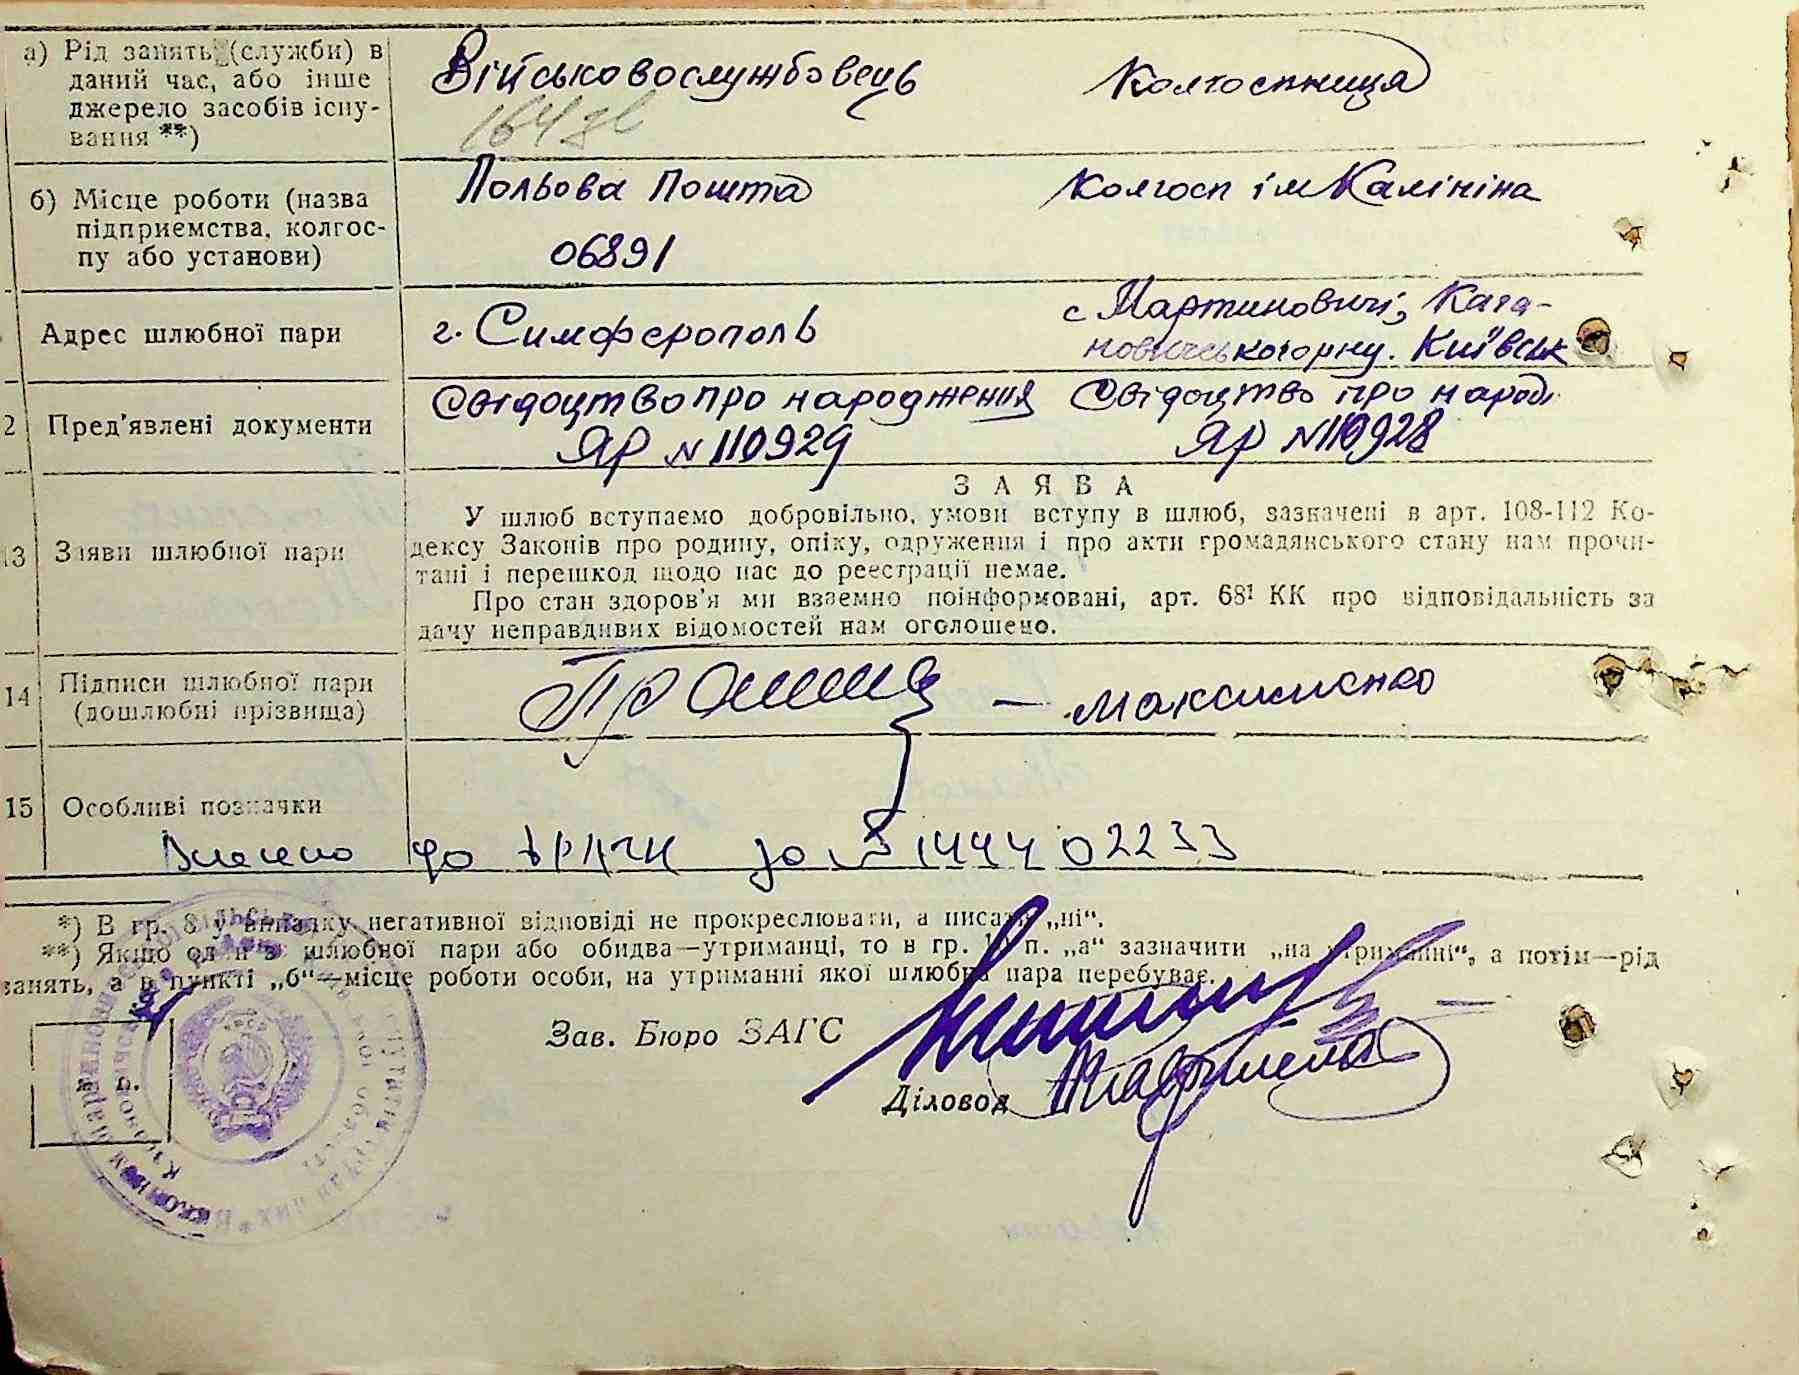 а) Рід занять (служби) в
даний час, або інше
джерело засобів існу-
вання **)
Військовослужбовець Колгоспниця
164
б) Місце роботи (назва
підприємства, колгос-
пу або установи)
Польова Пошта Колгосп ім Калініна
06891
Адрес шлюбної пари
г. Симферополь с Мартиновичі, Кага-
новичського р-ну. Київськ
2 Пред'явлені документи
Свідоцтво про народження Свідоцтво про народ.
ЯР N 110929 ЯР N 110928
ЗАЯВА
13 Заяви шлюбної пари
У шлюб вступаємо добровільно, умови вступу в шлюб, зазначені в арт. 108-112 Ко-
дексу Законів про родину, опіку, одруження і про акти громадянського стану нам прочи-
тані і перешкод щодо нас до реєстрації немає.
Про стан здоров'я ми взаємно поінформовані, арт. 68¹ КК про відповідальність за
дачу неправдивих відомостей нам оголошено.
14 Підписи шлюбної пари
(дошлюбні прізвища)
— Максименко
15 Особливі позначки
Внесено до ДРАЦСГ за № 1444 02233
*) В гр. 8 у випадку негативної відповіді не прокреслювати, а писати „ні“.
**) Якщо один з шлюбної пари або обидва—утриманці, то в гр. п. „а“ зазначити „на утриманні“, а потім—рід
занять, а в пункті „б“—місце роботи особи, на утриманні якої шлюбна пара перебуває.
Зав. Бюро ЗАГС
Діловод
м. п.